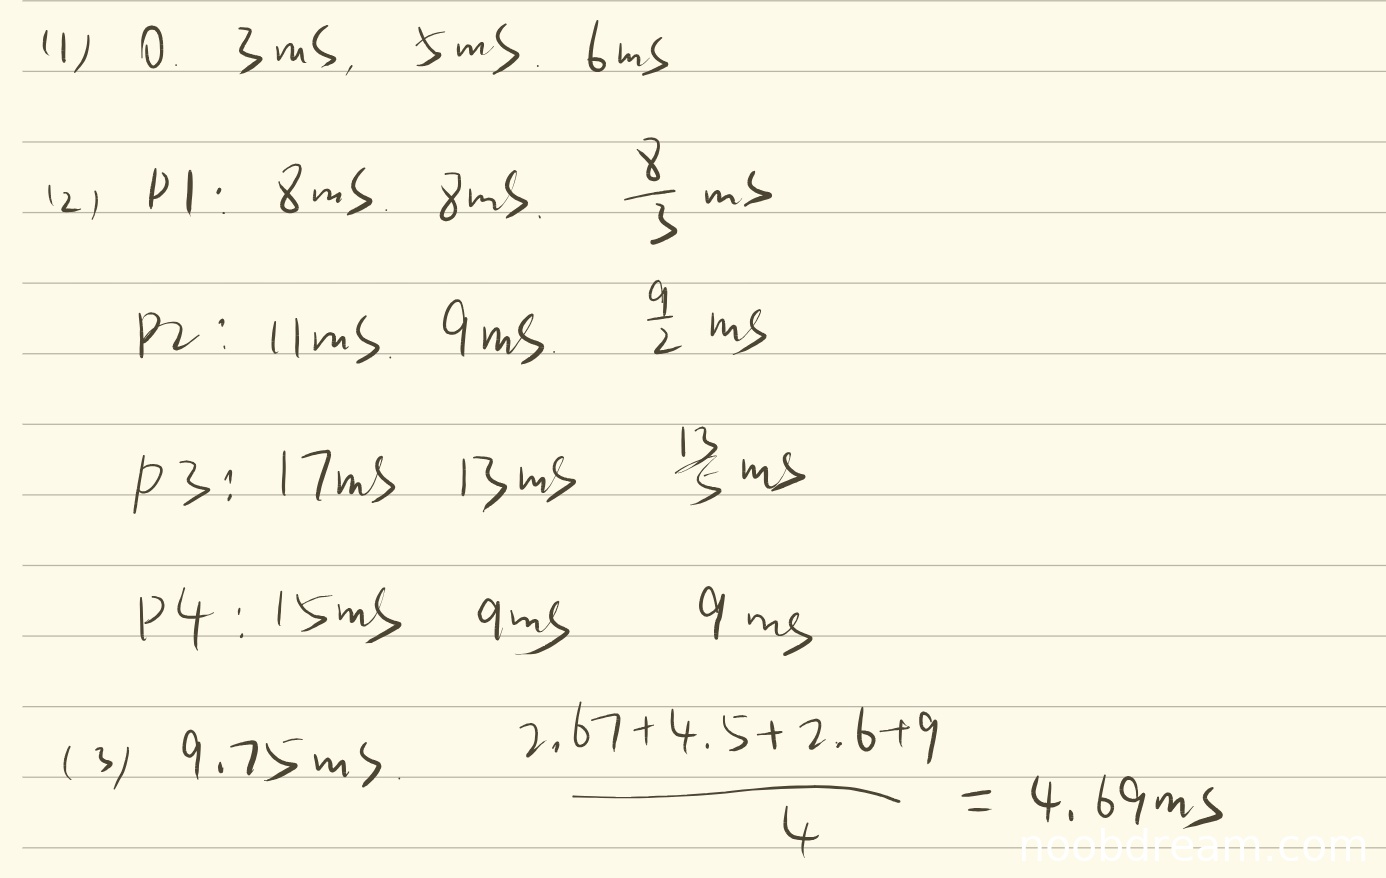 (1) 0. 3ms, 5ms. 6ms
(2) P1: 8ms. 8ms. 8/3 ms
P2: 11ms. 9ms. 9/2 ms
P3: 17ms 13ms 13/5 ms
P4: 15ms 9ms 9ms
(3) 9.75ms. (2.67+4.5+2.6+9)/4 = 4.69ms
noobdream.com